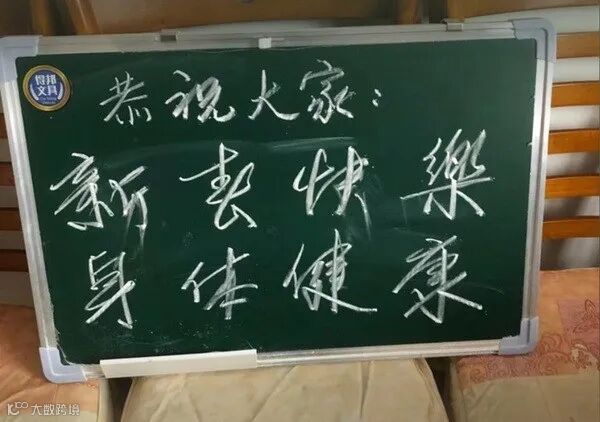 得邦
文具
恭祝大家：
新春快樂
身体健康
大数跨境